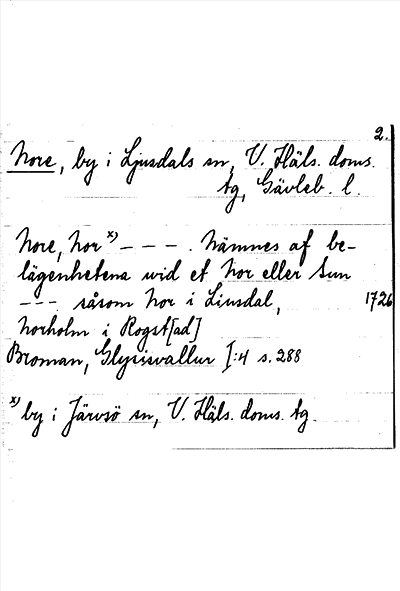 2.
Nore, by i Ljusdals sn, V. Häls. doms.
tg, Gävleb. l.
Nore, Nor x) – – – . Nämnes af be-
lägenhetena wid et Nor eller Sun
– – – såsom Nor i Liusdal, 1726
Norholm i Rogst[ad]
Broman, Glysisvallur I:4 s. 288
x) by i Järvsö sn, V. Häls. doms. tg.